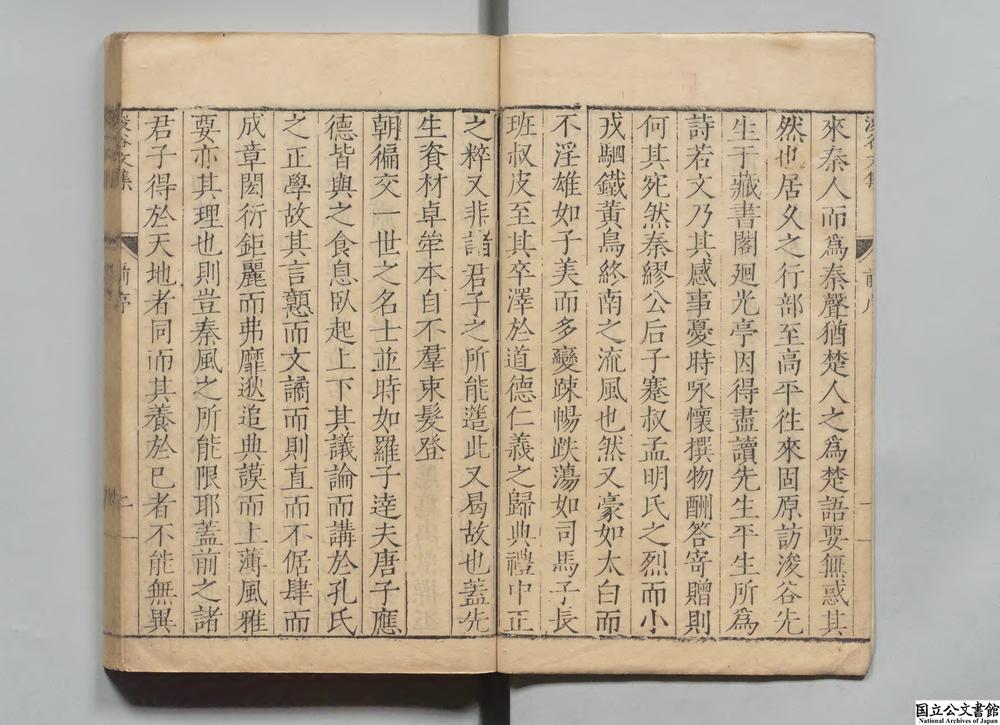 浚谷文集
前序
來秦人而爲秦聲猶楚人之爲楚語要無惑其
然也居久之行部至高平往來固原訪浚谷先
生于藏書閣廻光亭因得盡讀先生平生所爲
詩若文乃其感事憂時咏懷撰物酬答寄贈則
何其宛然秦繆公后子蹇叔孟明氏之烈而小
戎駟鐵黃鳥終南之流風也然又豪如太白而
不淫雄如子美而多變疎暢跌蕩如司馬子長
班叔皮至其卒澤於道德仁義之歸典禮中正
之粹又非諸君子之所能造此又曷故也蓋先
生資材卓犖本自不羣束髮登
朝徧交一世之名士並時如羅子達夫唐子應
德皆與之食息臥起上下其議論而講於孔氏
之正學故其言鬯而文譎而則直而不倨肆而
成章閎衍鉅麗而弗靡逖追典謨而上薄風雅
要亦其理也則豈秦風之所能限耶蓋前之諸
君子得於天地者同而其養於已者不能無異
浚谷文集
前序
二
国立公文書館
National Archives of Japan